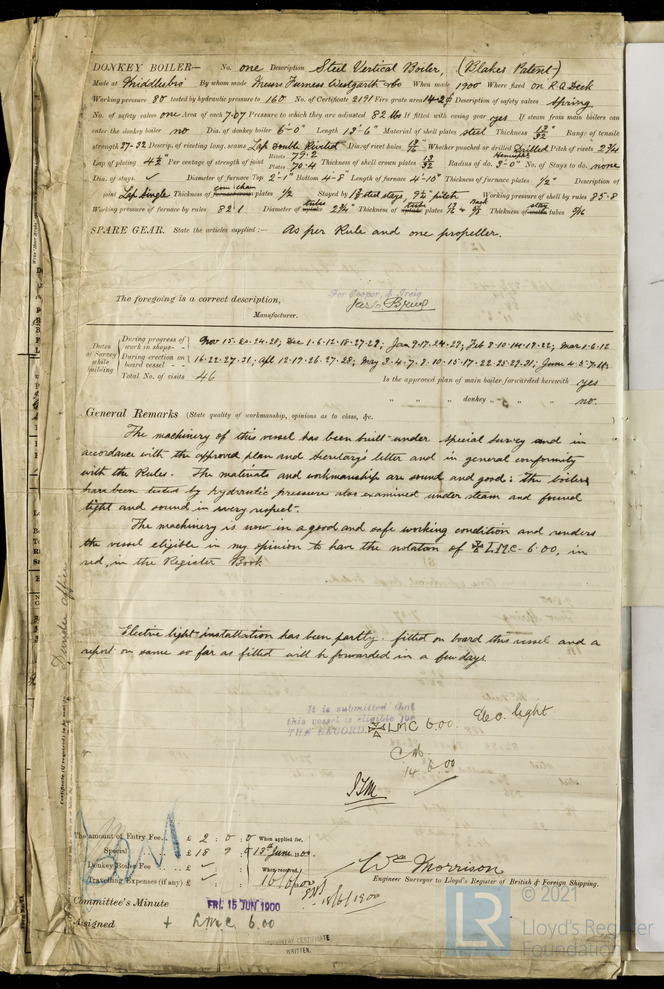 DONKEY BOILER— No. one Description Steel Vertical Boiler, (Blakes Patent)
Made at Middlesbro By whom made Messrs Furness Westgarth & Co When made 1900 Where fixed on R.Q. Deck
Working pressure 80 tested by hydraulic pressure to 160 No. of Certificate 2191 Fire grate area 14.2 Description of safety valves Spring
No. of safety valves one Area of each 7.07 Pressure to which they are adjusted 82 lbs If fitted with easing gear yes If steam from main boilers can
enter the donkey boiler no Dia. of donkey boiler 6'-0" Length 13'-6" Material of shell plates steel Thickness 13/32" Range of tensile
strength 27-32 Descrip. of riveting long. seams Lap Double Riveted Dia. of rivet holes Whether punched or drilled Drilled Pitch of rivets 2 3/4
Lap of plating 4 1/8 Per centage of strength of joint Rivets 79.2 Plates 70.4 Thickness of shell crown plates 13/32 Radius of do. 3'-0" No. of Stays to do. none
Dia. of stays. ✓ Diameter of furnace Top 2'-1" Bottom 4'-8" Length of furnace 4'-10" Thickness of furnace plates 1/2" Description of
joint Lap Single Thickness of plates 1/2 Stayed by steel stays, 9 1/2 pitch Working pressure of shell by rules 85.8
Working pressure of furnace by rules 82.1 Diameter of tubes 2 3/4" Thickness of plates Thickness of stay tubes 5/16
SPARE GEAR. State the articles supplied:— As per Rule and one propeller.
The foregoing is a correct description,
For Cooper & Greig
Manufacturer.
Dates of Survey while building
During progress of work in shops - - Nov 15.20.24.28; Dec 1.6.12.18.27.29; Jan 9.17.24.29; Feb 8.10.14.19.22; Mar 1.6.12
During erection on board vessel - - 16.22.27.31; Apl 12.17.26.27.28; May 3.4.7.8.10.15.17.22.25.29.31; June 4.5.7.11.
Total No. of visits 46
Is the approved plan of main boiler forwarded herewith yes
" " " donkey " " " no.
General Remarks (State quality of workmanship, opinions as to class, &c.
The machinery of this vessel has been built under special survey and in
accordance with the approved plan and Secretary's letter and in general conformity
with the Rules. The materials and workmanship are sound and good: the boilers
have been tested by hydraulic pressure also examined under steam and found
tight and sound in every respect.
The machinery is now in a good and safe working condition and renders
the vessel eligible in my opinion to have the notation of ✠ LMC-6.00, in
red, in the Register Book
Electric light installation has been partly fitted on board this vessel and a
report on same so far as fitted will be forwarded in a few days.
It is submitted that
this vessel is eligible for
THE RECORD. ✠ LMC 6.00. Elec. light
14.6.00
The amount of Entry Fee.. £ 2 : 0 : 0 When applied for,
Special £ 18 13th June 1900
Donkey Boiler Fee £ ✓ When received,
Travelling Expenses (if any) £ ✓ 16/6/00
18/6/1900
Wm Morrison
Engineer Surveyor to Lloyd's Register of British & Foreign Shipping.
Committee's Minute FRI. 15 JUN 1900
Assigned + LMC 6.00
MACHINERY CERTIFICATE
WRITTEN.
Dundee Office
LR
© 2021
Lloyd's Register
Foundation